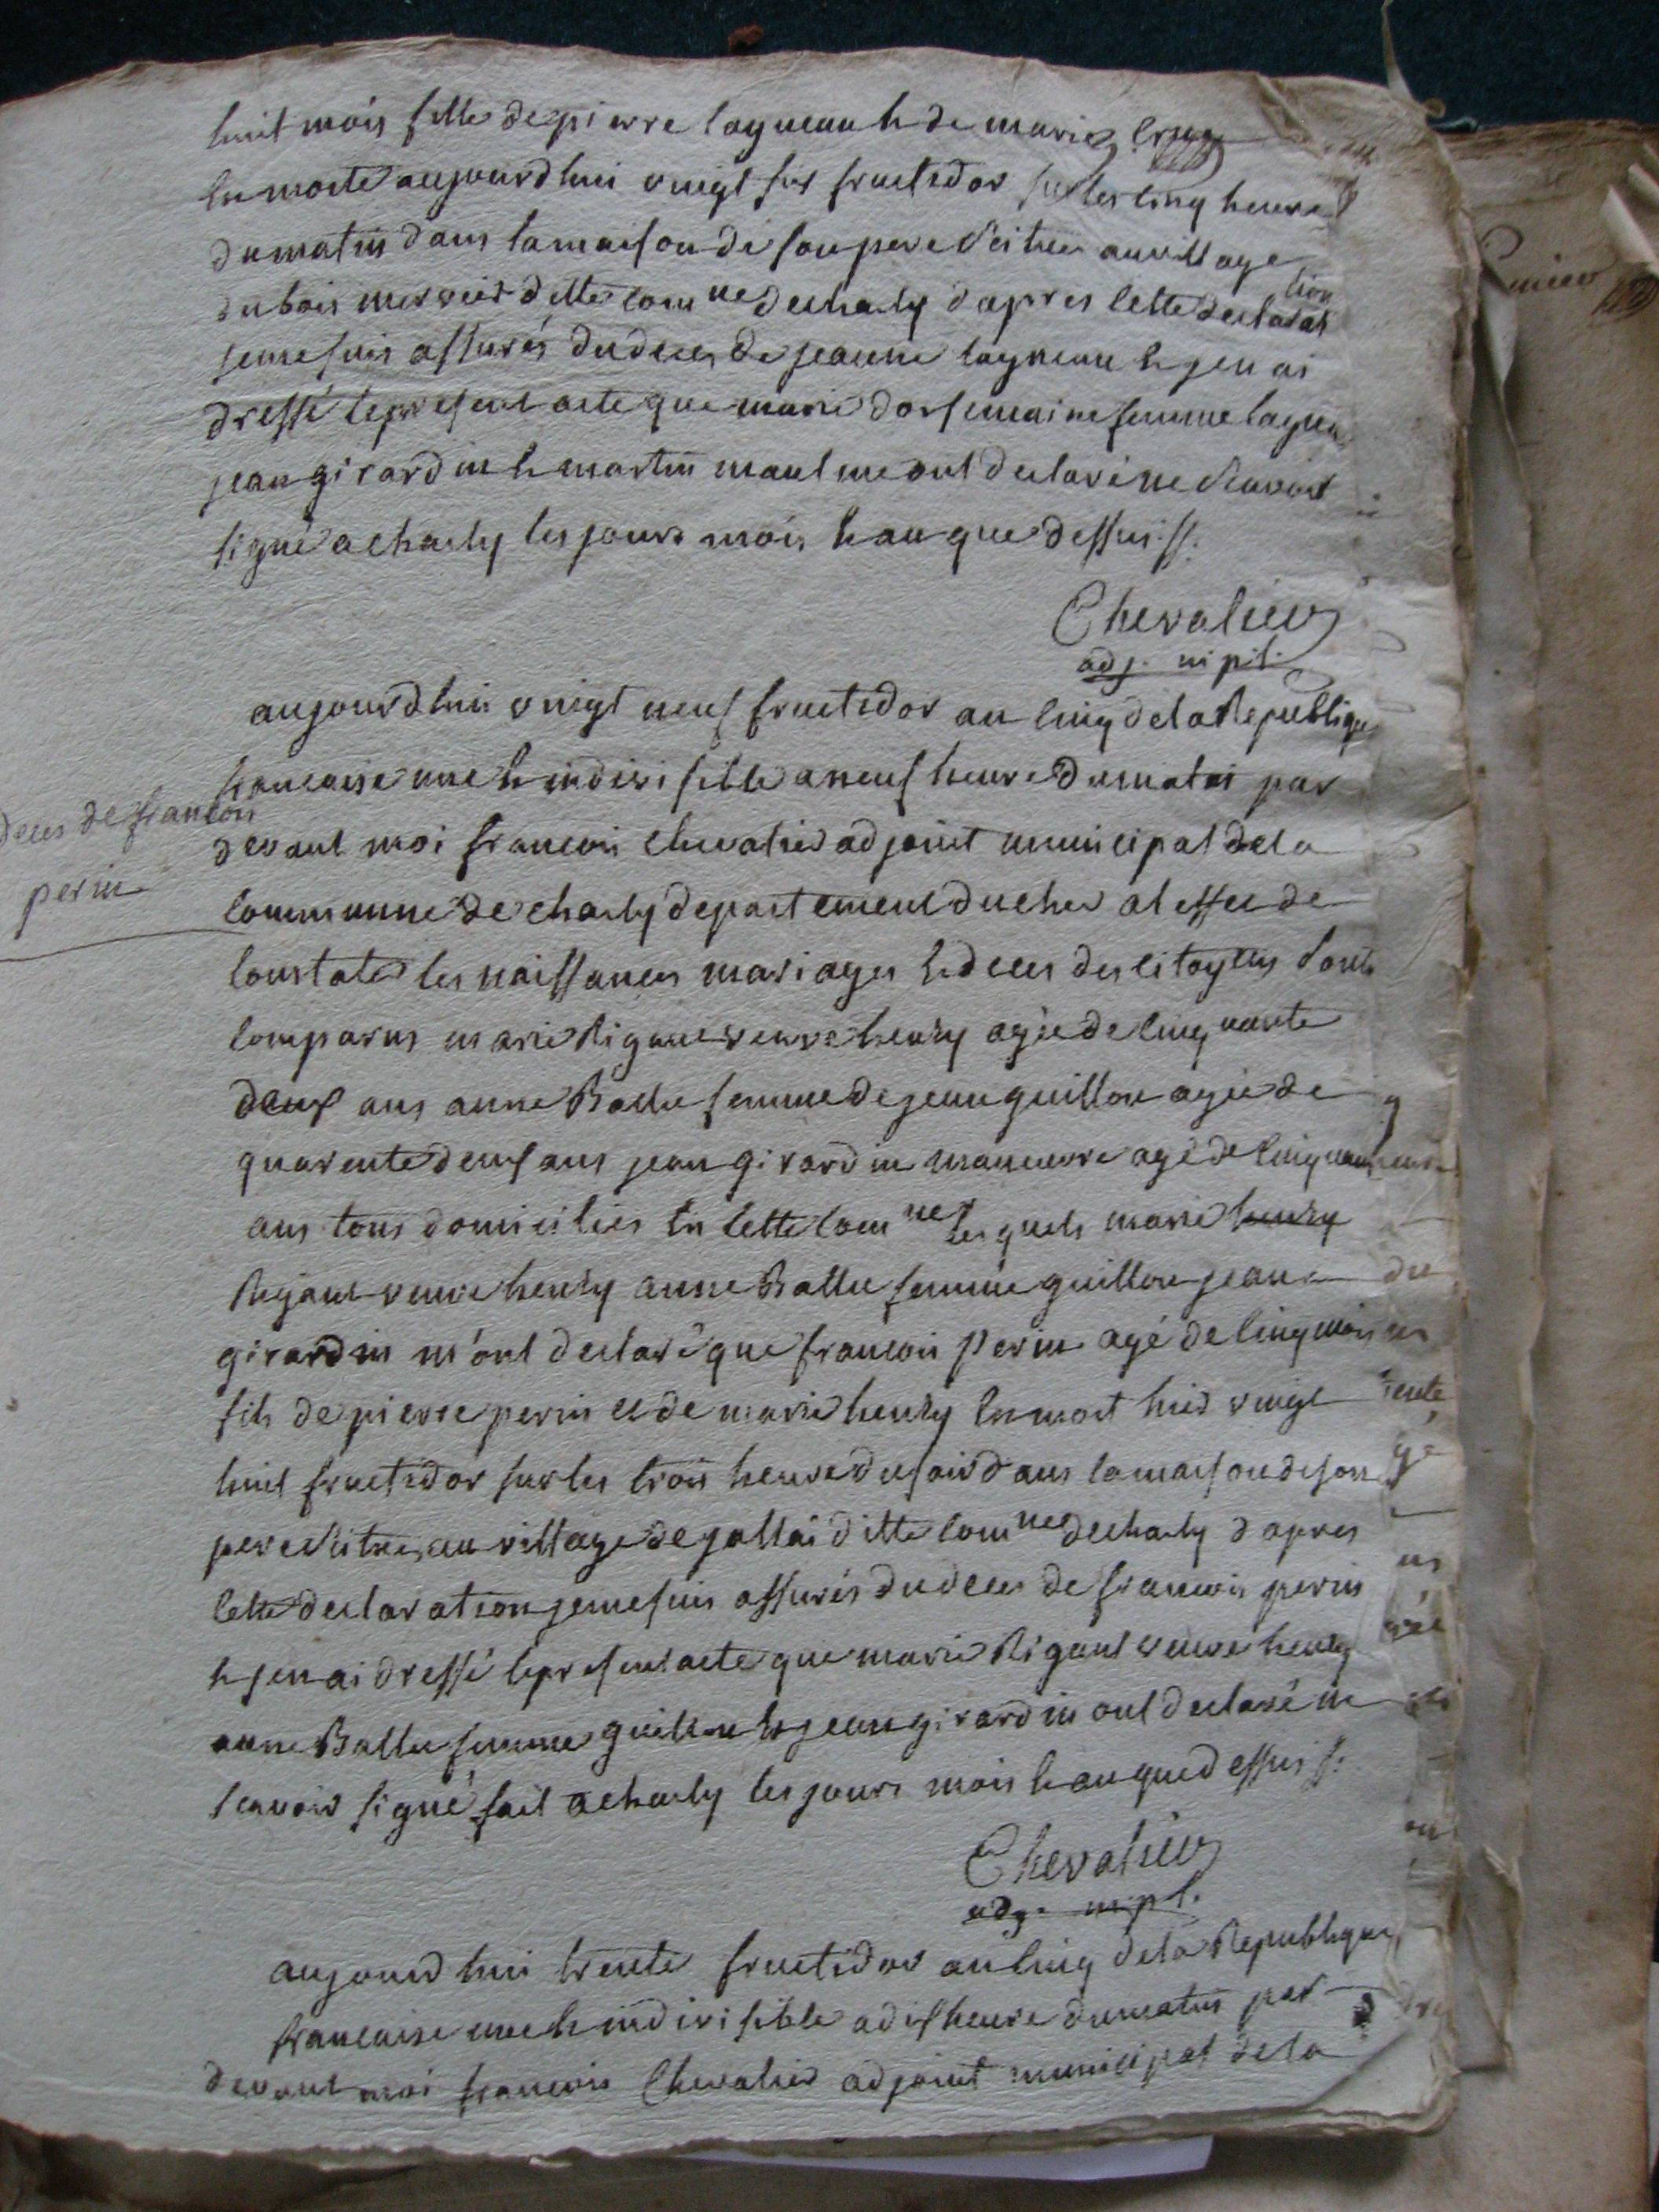 huit mois fille de pierre lagneau & de marie
En morte aujourd hui vingt six fructidor sur les cinq heure
du matin dans la maison de son pere scituée au village
du bois mercier ditte com ne de charly d apres cette declaration
je me suis assurés du deces de jeanne lagneau & jen ai
dressé le present acte que marie dorsemaine femme lagneau
jean girardin & martin maul me ont declaré ne scavoir
signé a charly les jours mois & an que dessus ./.
Chevalier
adj. m pl.
aujourd hui vingt neuf fructidor an cinq de la Republique
francaise une & indivisible a neuf heure du matin par
deces de francois
perin
devant moi francois chevalier adjoint municipal de la
communne de charly departement du cher al effet de
constater les naissances mariages & deces des citoyens sont
comparus marie Rigaut veuve henry agée de cinquante
deux ans anne Ballu femme de jean guillon agée de
quarente deux ans jean girardin manuvre agé de cinquante
ans tous domiciliés En cette com ne les quels marie henry
Rigaut veuve henry anne Ballu femme guillon jean
girardin m'ont declaré que francois perin agé de cinq mois
fils de pierre perin et de marie henry En mort hier vingt
huit fructidor sur les trois heure du soir dans la maison de son
pere scituée au village de jallai ditte com ne de charly d apres
cette declaration je me suis assurés du deces de francois perin
& jen ai dressé le present acte que marie Rigaut veuve henry
anne Ballu femme guillon & jean girardin ont declaré ne
scavoir signé fait a charly les jours mois & an que dessus ./.
Chevalier
adj. m pl.
aujourd hui trente fructidor an cinq de la Republique
francaise une & indivisible a dix heure du matin par
devant moi francois Chevalier adjoint municipal de la